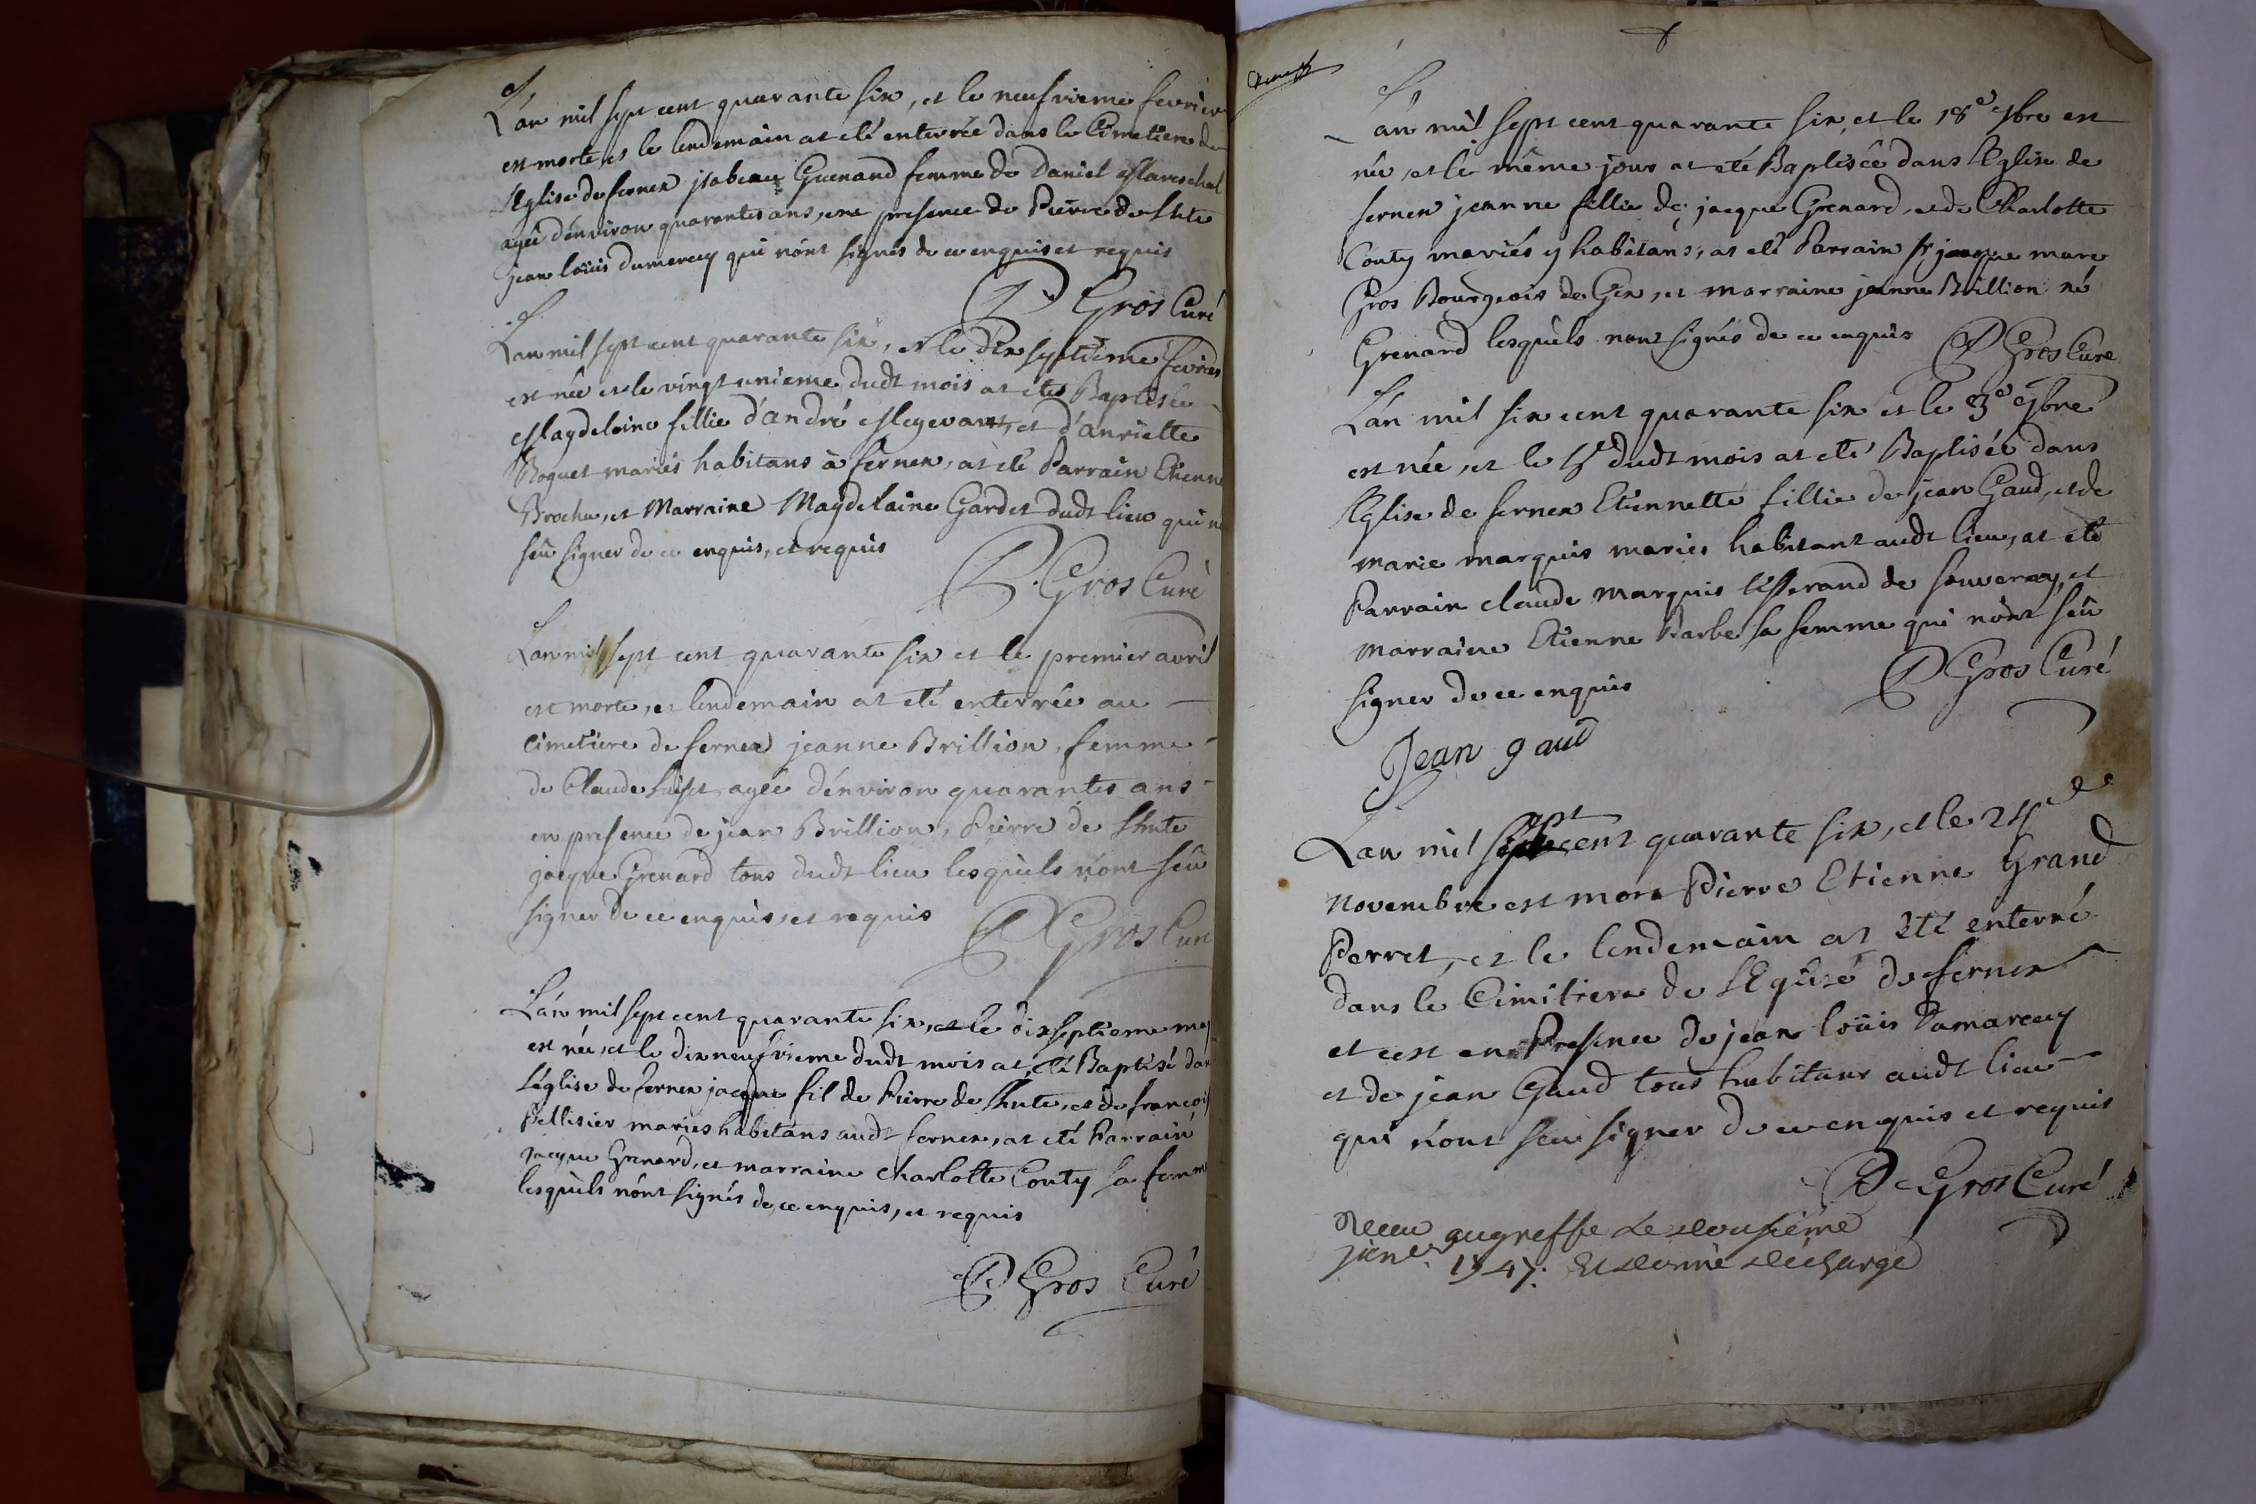 L'an mil sept cent quarante six, et le neufvieme fevrier
est morte, et le lendemain at eté enterrée dans le Cimetiere de
l'Eglise de fernex jsabeau Guenand femme de Daniel Mareschal
agée d'environ quarantes ans, en presence de Pierre de Shte
jean loüis dumarcey qui n'ont signés de ce enquis et requis
P Gros Curé
L'an mil sept cent quarante six, et le dix septieme fevrier
est née et le vingt unieme dudt mois at eté Baptisée
Magdeleine fillie d'andré Megevant, et d'anriette
Roguet mariés habitans à fernex, at eté Parrain Etienne
Brochu, et Marraine Magdelaine Gardet dudt lieu qui n
seû signer de ce enquis, et requis
P. Gros Curé
L'an mil sept cent quarante six et le premier avril
est morte, et lendemain at eté enterrée au
cimetiere de fernex jeanne Brillion, femme
de Claude agée d'environ quarantes ans
en presence de jean Brillion, Pierre de Shute
jacque Grenard tous dudt lieu lesquels n'ont seû
signer de ce enquis, et requis
P Gros Curé
L'an mil sept cent quarante six, et le dix septieme may
est née, et le dix neufvieme dudt mois at eté Baptisé dans
l'église de fernex jacque fil de Pierre de Shute, et de françois
Pellisier mariés habitans audt fernex, at eté Parrain
jacque Grenard, et marraine Charlotte Conty sa femme
lesquels n'ont signés de ce enquis, et requis
P Gros Curé
L'an mil sept cent quarante six, et le 18e 9bre est
née, et le même jour at eté Baptisée dans l'Eglise de
fernex jeanne fillie de jacque Grenard, et de Charlotte
Conty mariés y habitans, at eté Parrain sr jacque marc
Gros Bourgeois de Gex, et marraine jeanne Brillion né
Grenard lesquels n'ont signés de ce enquis
P Gros Curé
L'an mil six cent quarante six et le 3e 9bre
est née, et le 4e dudt mois at eté Baptisée dans
l'Eglise de fernex Etiennette fillie de jean Gaud, et de
marie marquis mariés habitant audt lieu, at eté
Parrain claude marquis tisserand de souverny, et
marraine Etienne Barbe sa femme qui n'ont seû
signer de ce enquis
P Gros Curé
Jean gaud
L'an mil sept cent quarante six, et le 24e de
Novembre est mort Pierre Etienne Grand
Perret, et le lendemain at eté enterré
dans le Cimitiere de l'Eglise de fernex
et cest en Presence de jean loüis Damarcey
et de jean Gaud tous habitans audt lieu
qui n'ont seu signer de ce enquis et requis
P Gros Curé
Receu au greffe Le dousiéme
janer 1747. Et donné décharge